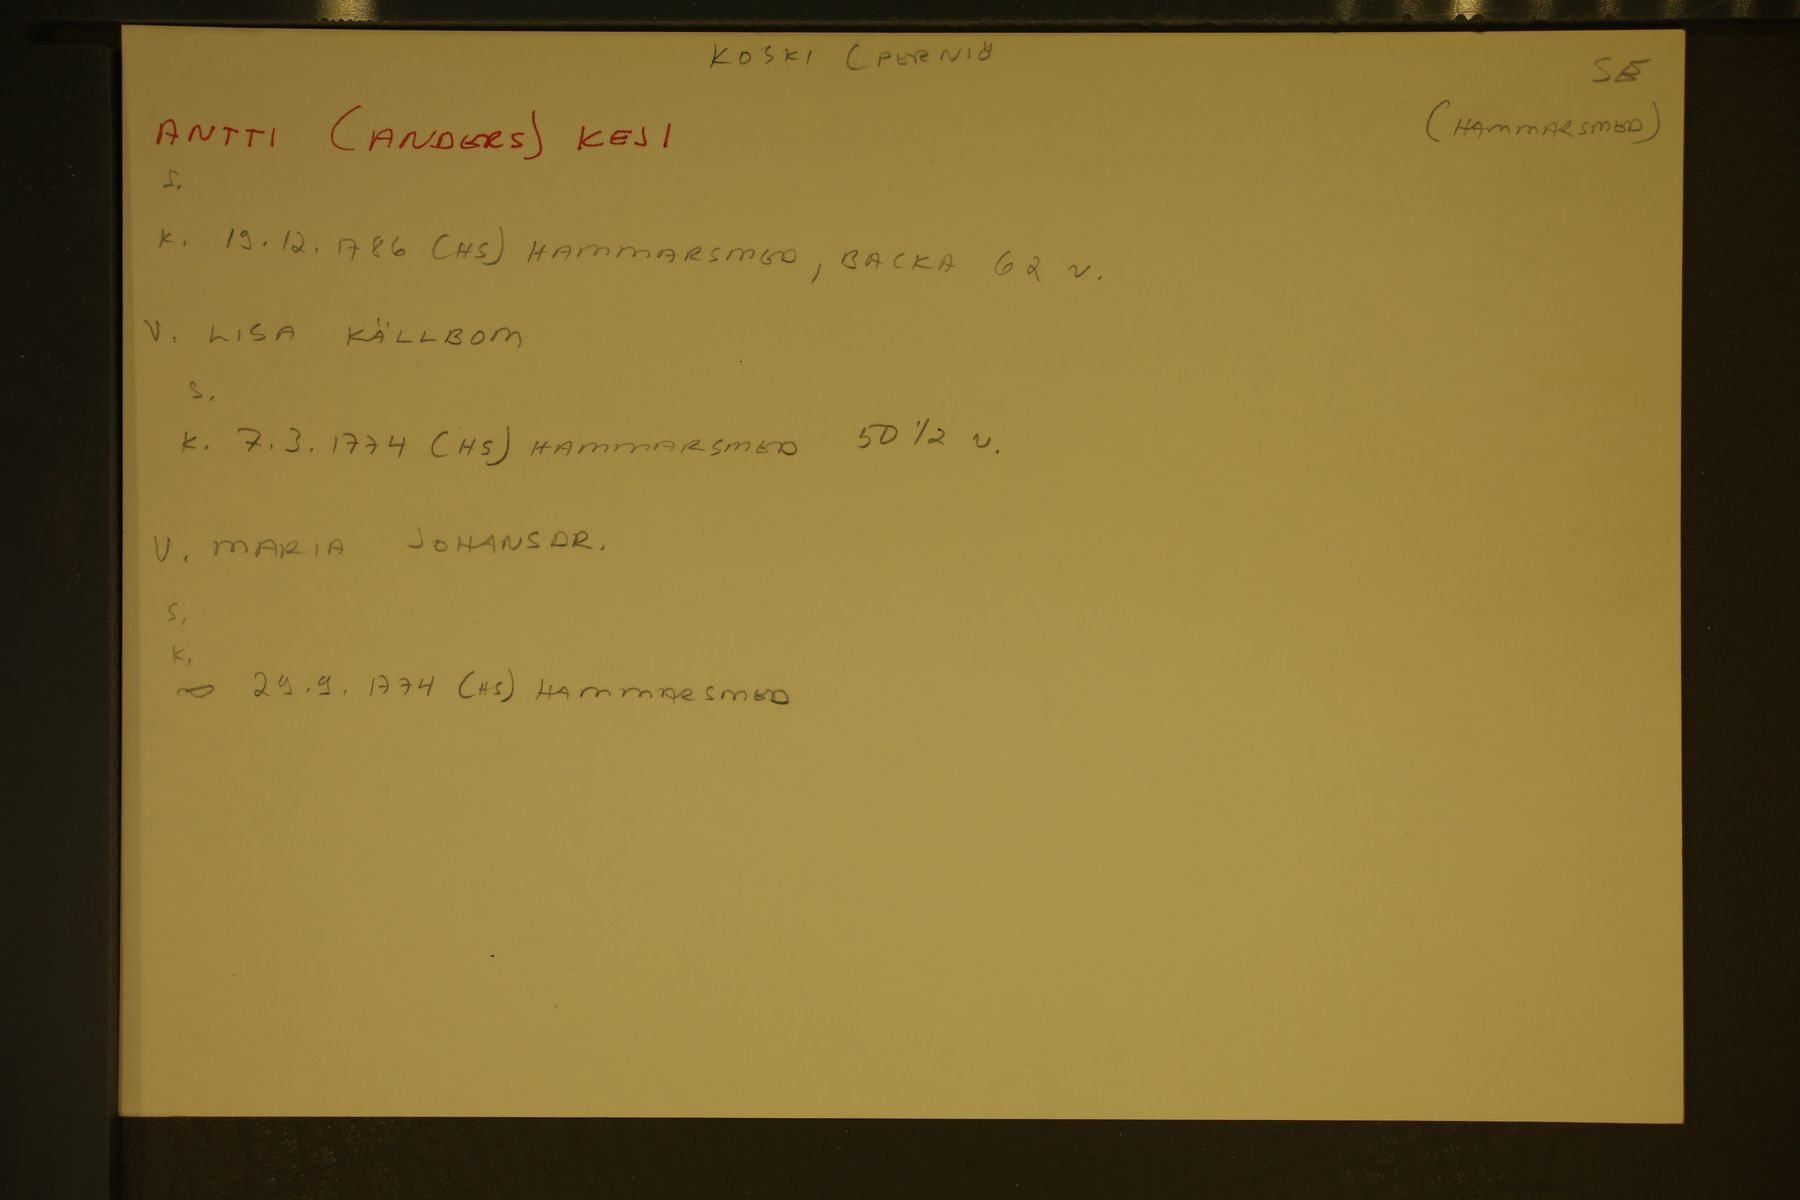 KOSKI (PERNIÖ
SE
(HAMMARSMED)
ANTTI (ANDERS) KESI
S.
K. 19.12.1786 (HS) HAMMARSMED, BACKA 62 v.
V. LISA KÄLLBOM
S.
K. 7.3.1774 (HS) HAMMARSMED 50 1/2 v.
V. MARIA JOHANSDR.
S.
K.
∞ 29.9.1774 (HS) HAMMARSMED